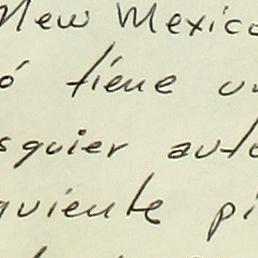 New Mexico
ó tiene u
squier auto
quiente pi